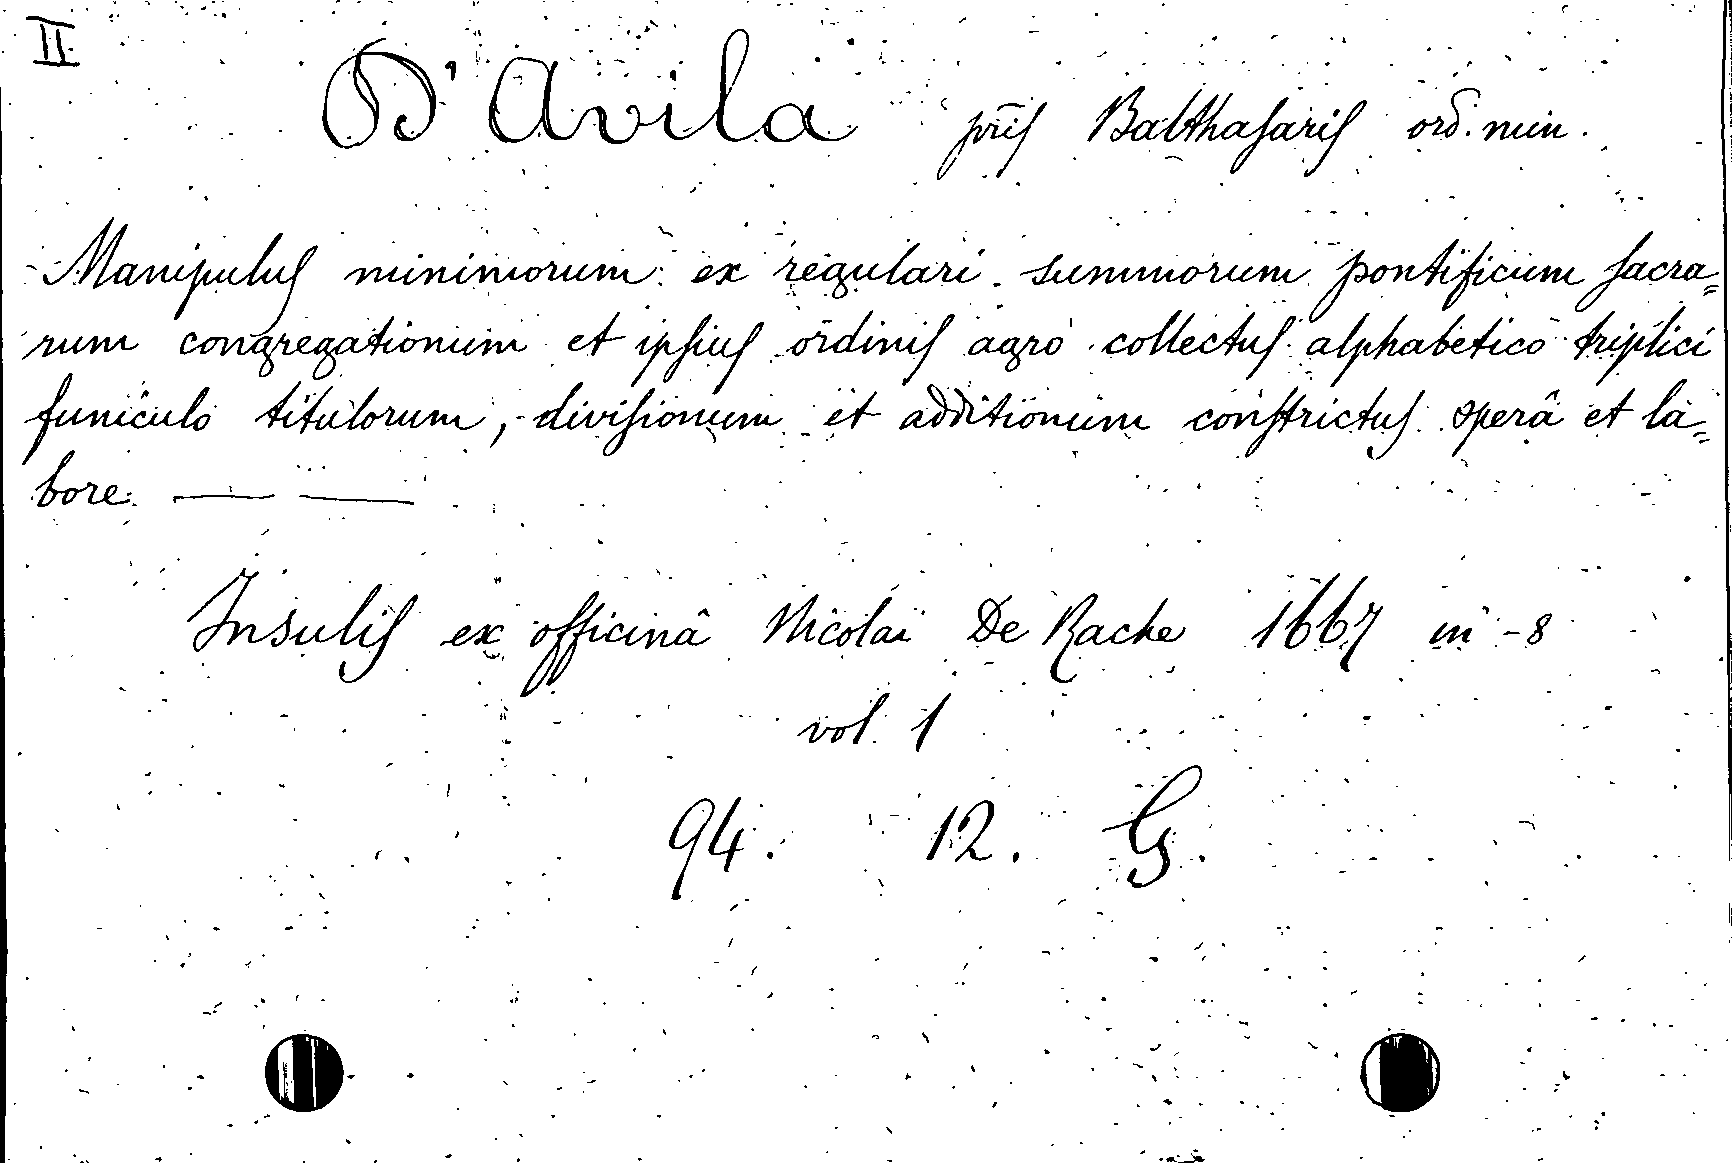 II
D'Avila p̄ris Balthasaris ord. min.
Manipulus minimorum ex regulari summorum pontificum sacra=
rum congregationum et ipsius ordinis agro collectus alphabetico triplici
funiculo titulorum, divisionum et additionum constrictus operâ et la=
bore — —
Insulis ex officinâ Nicolai De Rache 1667 in-8
vol. 1
94. 12. G.